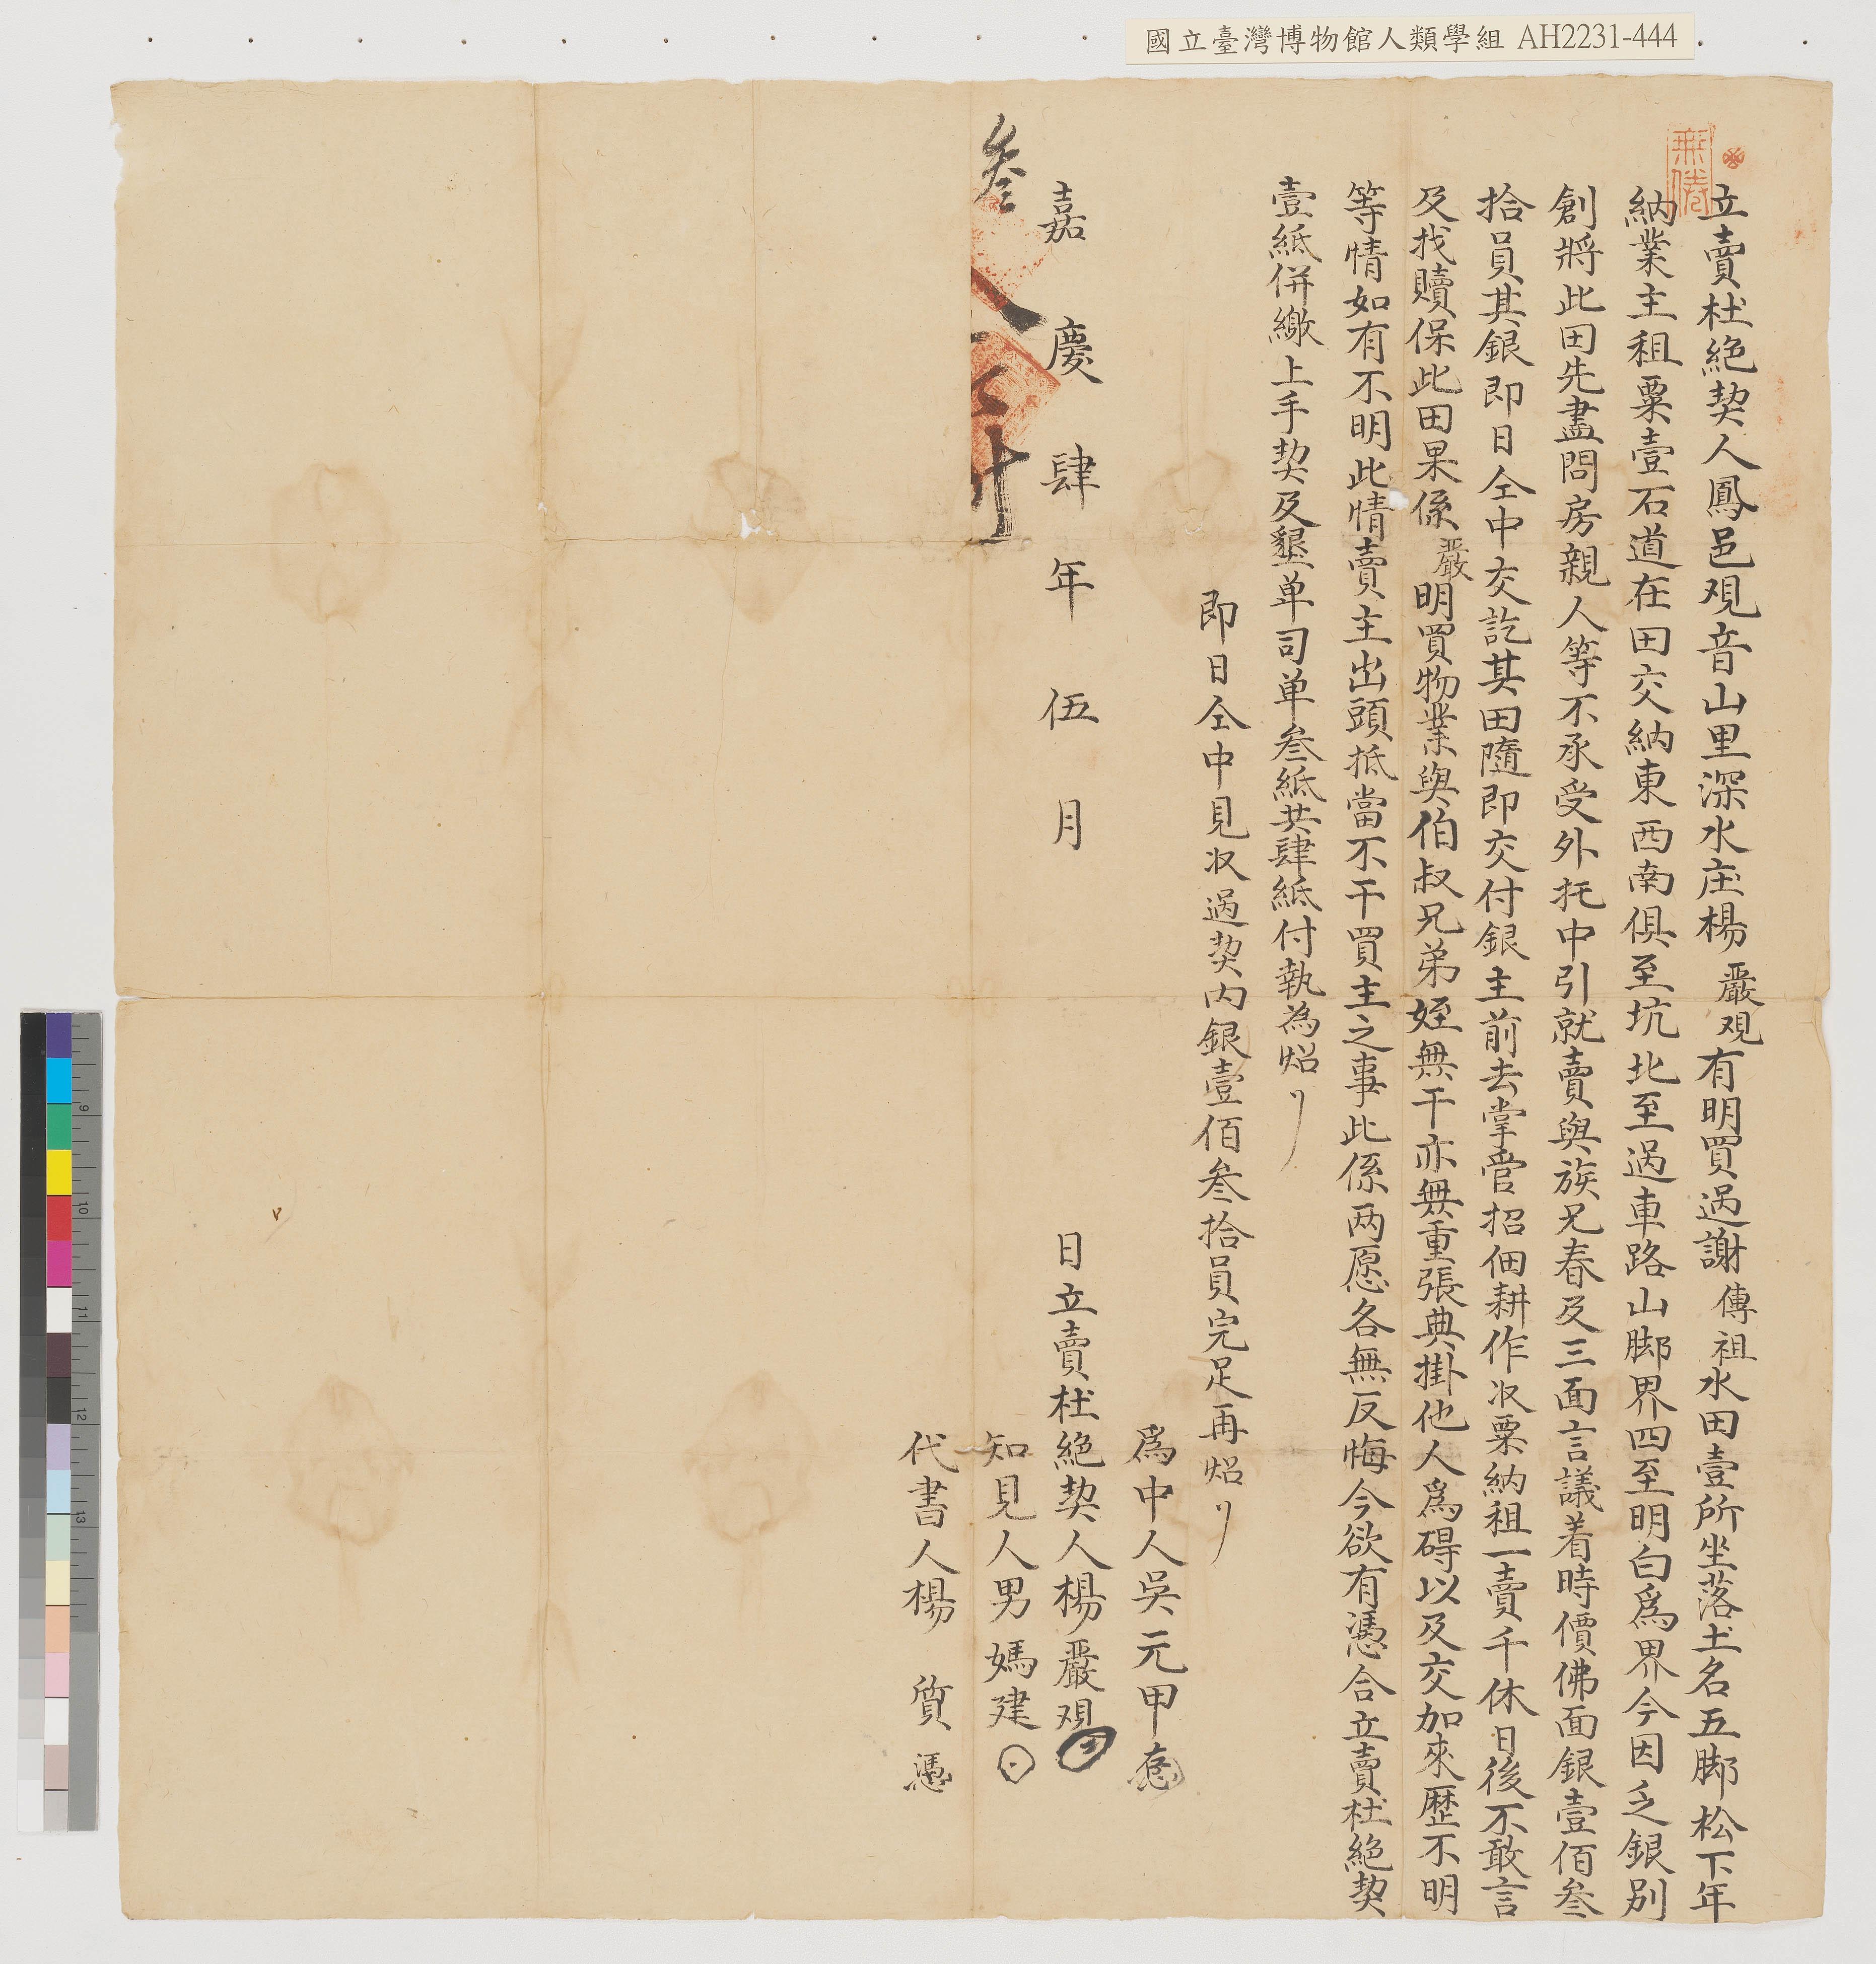 國立臺灣博物館人類學組 AH2231-444
無倦
立賣杜絕契人鳳邑观音山里深水庄楊嚴观有明買過謝傳祖水田壹所坐落土名五脚松下年
納業主租粟壹石道在田交納東西南俱至坑北至過車路山脚界四至明白爲界今因乏銀別
創將此田先盡問房親人等不承受外托中引就賣與族兄春及三面言議着時價佛面銀壹佰叁
拾員其銀即日仝中交訖其田隨即交付銀主前去掌管招佃耕作収粟納租一賣千休日後不敢言
及找贖保此田果係嚴明買物業與伯叔兄弟姪無干亦無重張典掛他人爲碍以及交加來歷不明
等情如有不明此情賣主出頭抵當不干買主之事此係两愿各無反悔今欲有憑合立賣杜絕契
壹紙併繳上手契及墾单司单叁紙共肆紙付執為炤
即日仝中見収過契内銀壹佰叁拾員完足再炤
爲中人吳元甲
嘉慶肆年伍月 日立賣杜絕契人楊嚴观
知見人男媽建
代書人楊質憑
叁